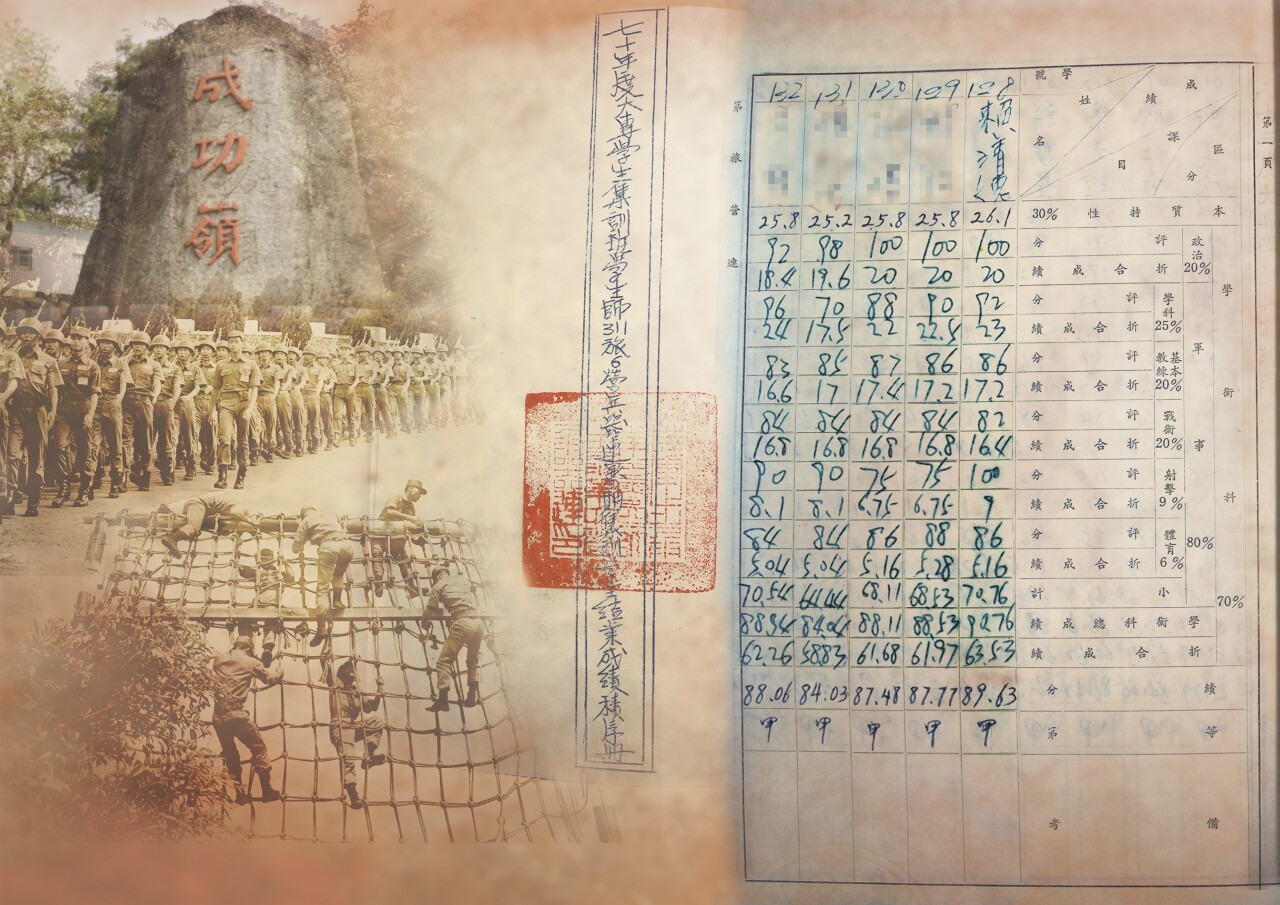 成功嶺
七十年度大專學生集訓班學生師311旅6營兵器連寒期集訓學生結業成績積序冊
第一頁
第 旅 營 連
成績區分 課目 學號 姓名
132 131 130 129 128
賴清德
本質特性 30% 26.1 25.8 25.8 25.2 25.8
學術科 70%
軍事 80%
政治 20% 評分 100 100 100 98 92
折合成績 20 20 20 19.6 18.4
學科 25% 評分 92 90 88 70 96
折合成績 23 22.5 22 17.5 24
基本教練 20% 評分 86 86 87 85 83
折合成績 17.2 17.2 17.4 17 16.6
戰術 20% 評分 82 84 84 84 84
折合成績 16.4 16.8 16.8 16.8 16.8
射擊 9% 評分 100 75 75 90 90
折合成績 9 6.75 6.75 8.1 8.1
體育 6% 評分 86 88 86 84 84
折合成績 5.16 5.28 5.16 5.04 5.04
小計 70.76 68.53 68.11 64.44 70.54
學術科總成績 90.76 88.53 88.11 84.04 88.94
折合成績 63.53 61.97 61.68 58.83 62.26
績分 89.63 87.77 87.48 84.03 88.06
等第 甲 甲 甲 甲 甲
備考